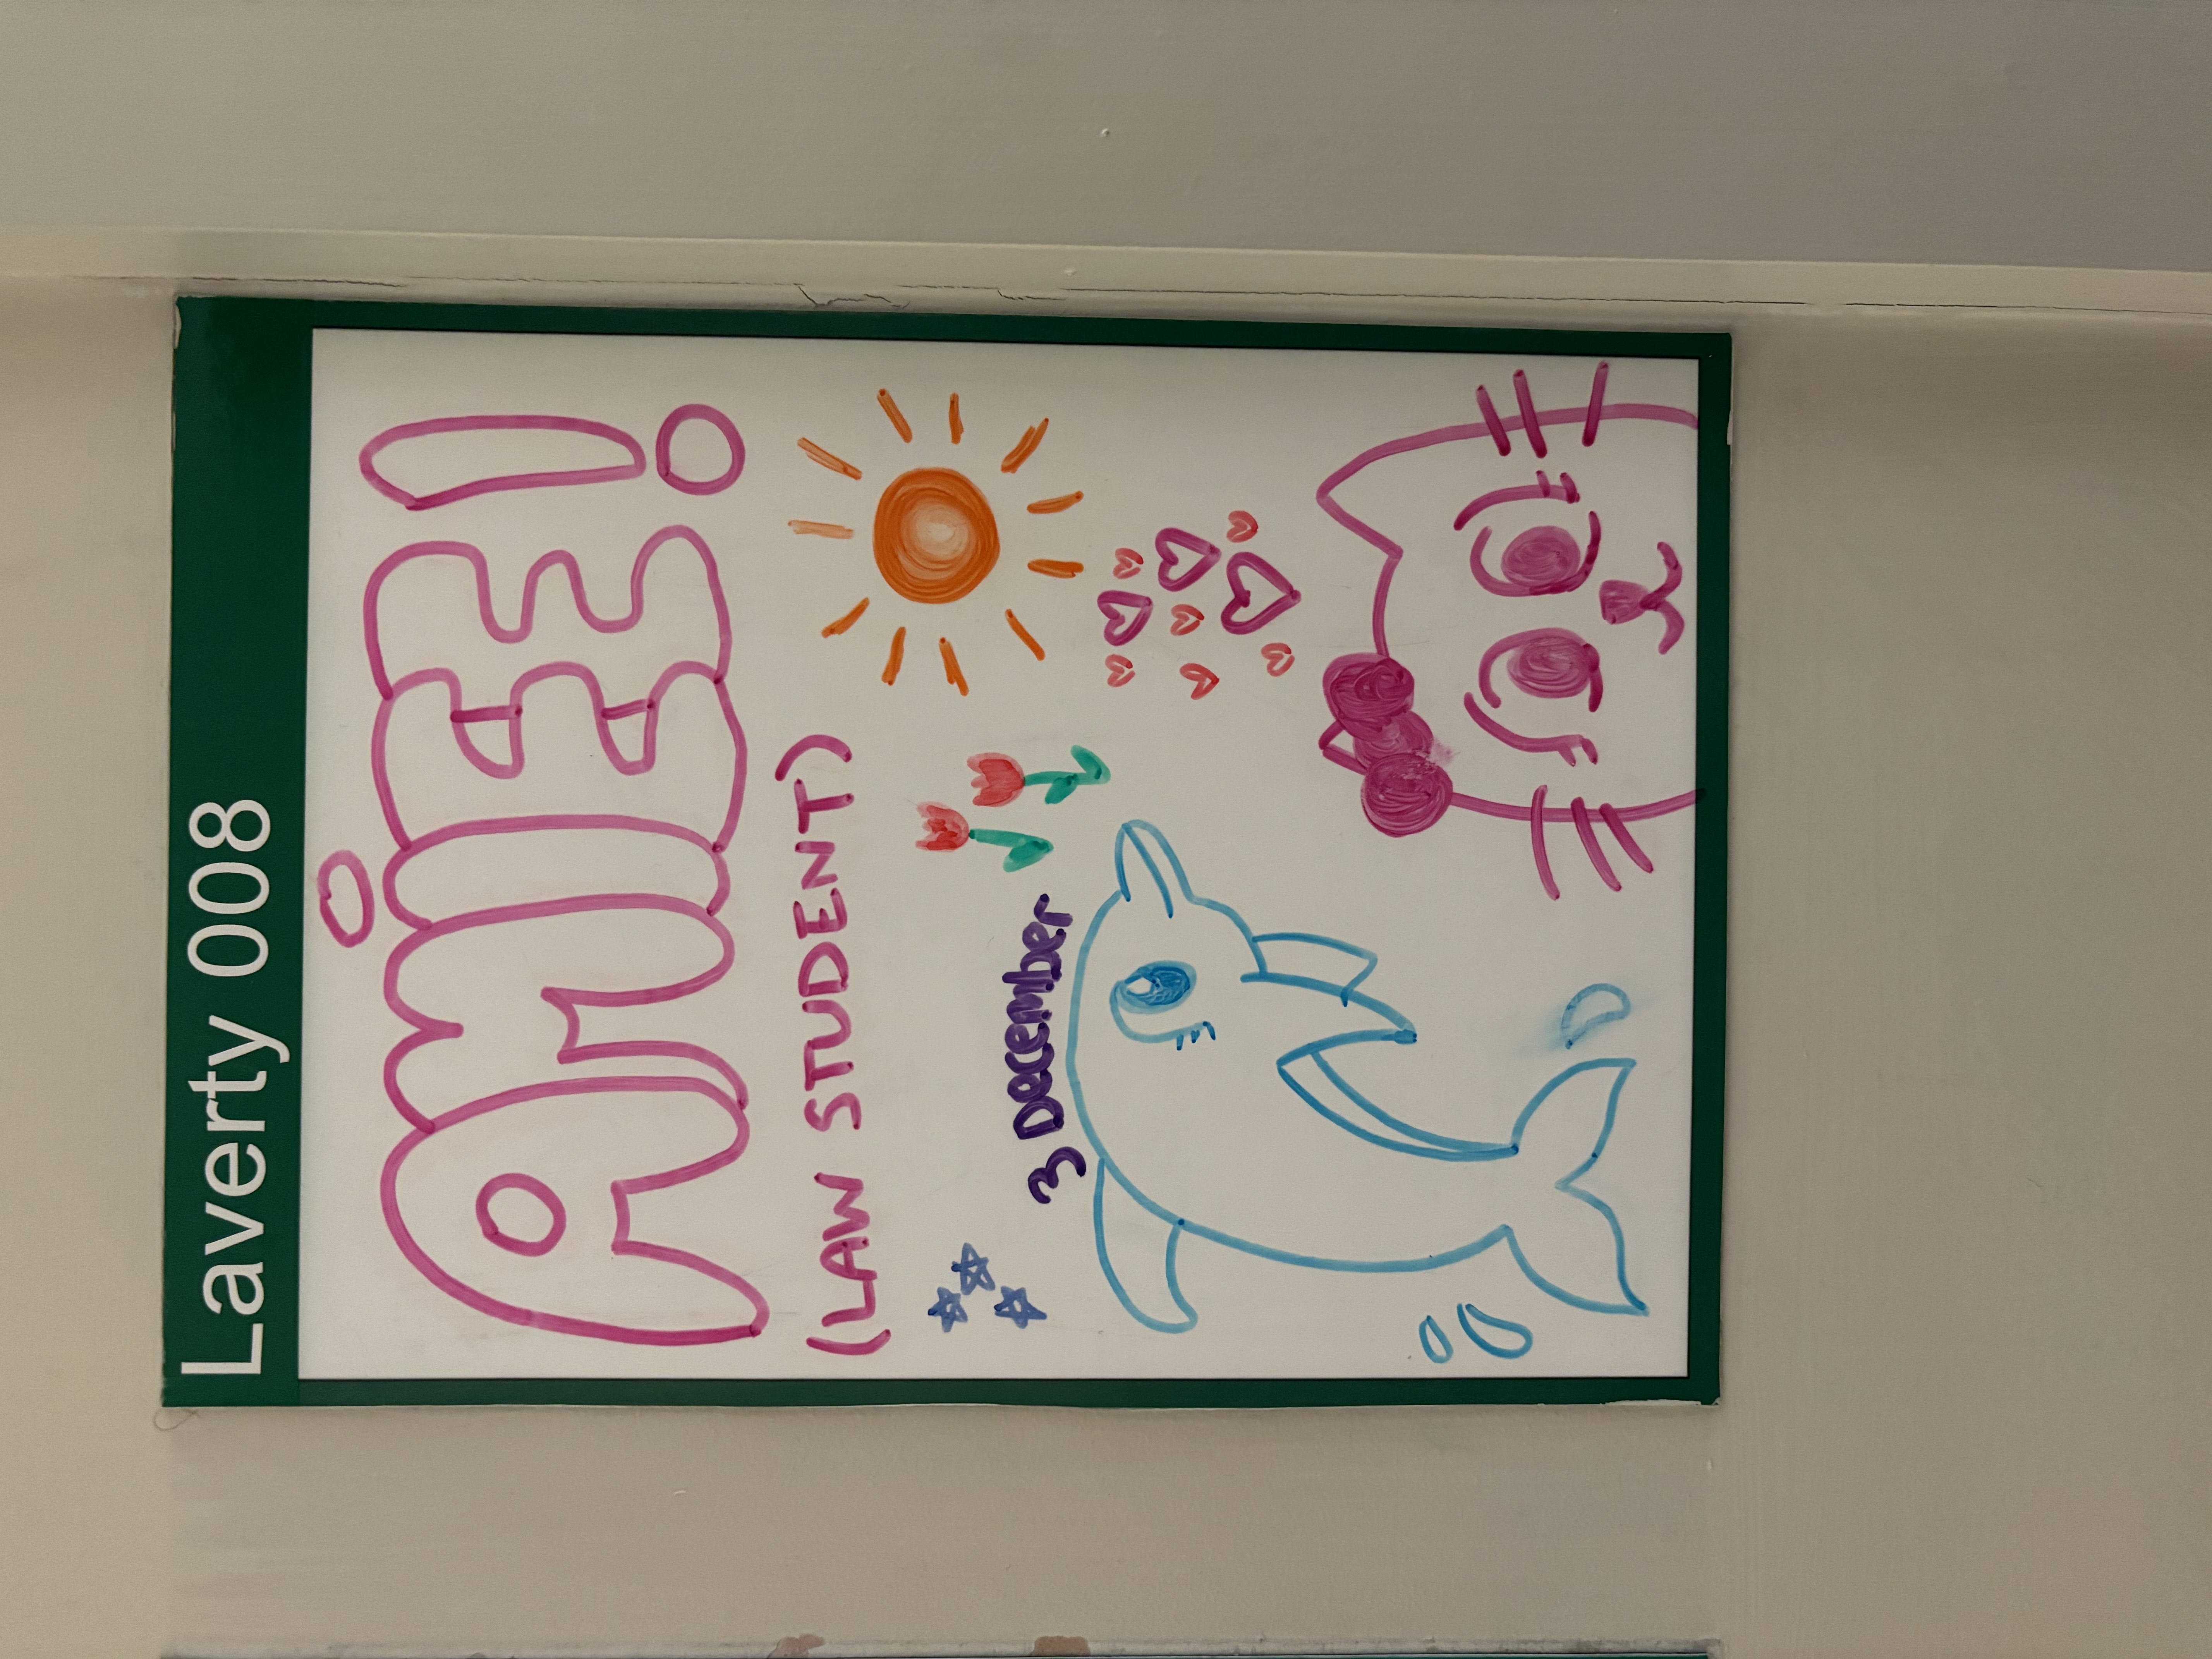 Laverty 008
AMiEE!
(LAW STUDENT)
3 December